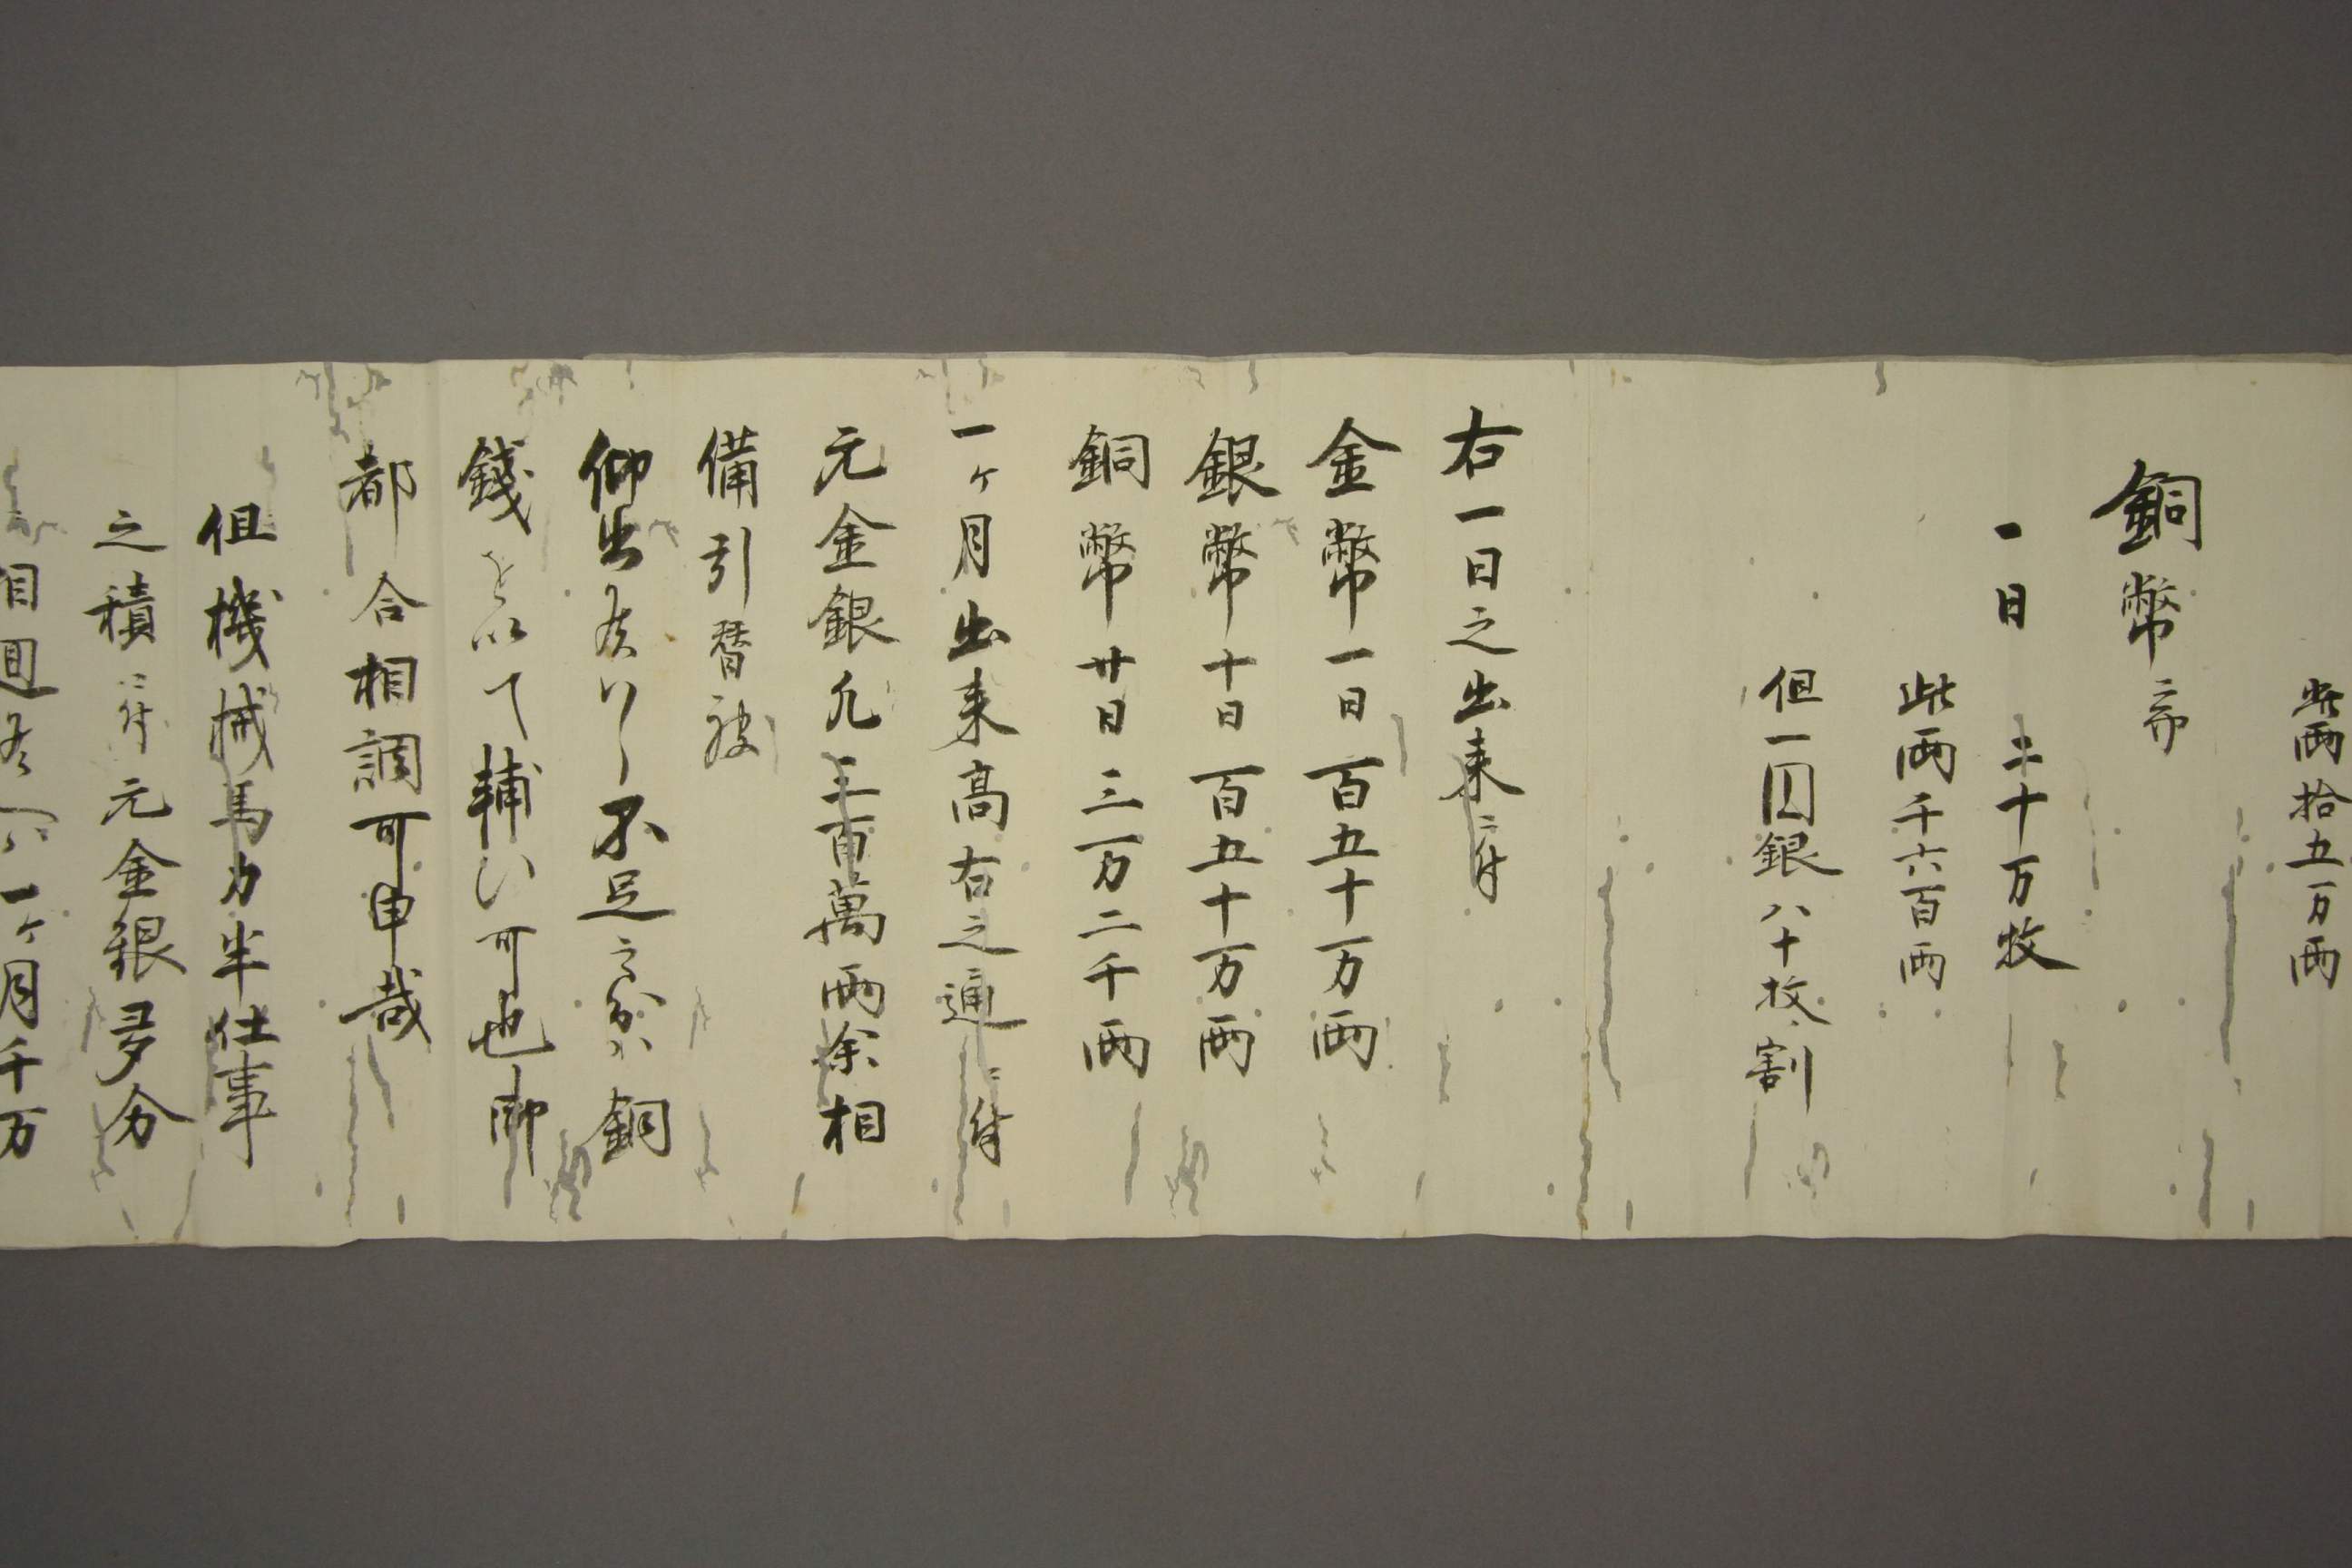 此両拾五万両
銅幣
一日 二十万枚
此両千六百両
但一円銀八十枚割
右一日之出来ニ付
金幣一日百五十万両
銀幣十日百五十万両
銅幣廿日三万二千両
一ヶ月出来高右之通ニ付
元金銀凡三百萬両余相
備引替被
仰出候ハヽ不足之分ハ銅
銭を以て輔ひ可也御
都合相調可申哉
但機械馬力半仕事
之積ニ付元金銀多分
相廻候ヘハ一ヶ月千万